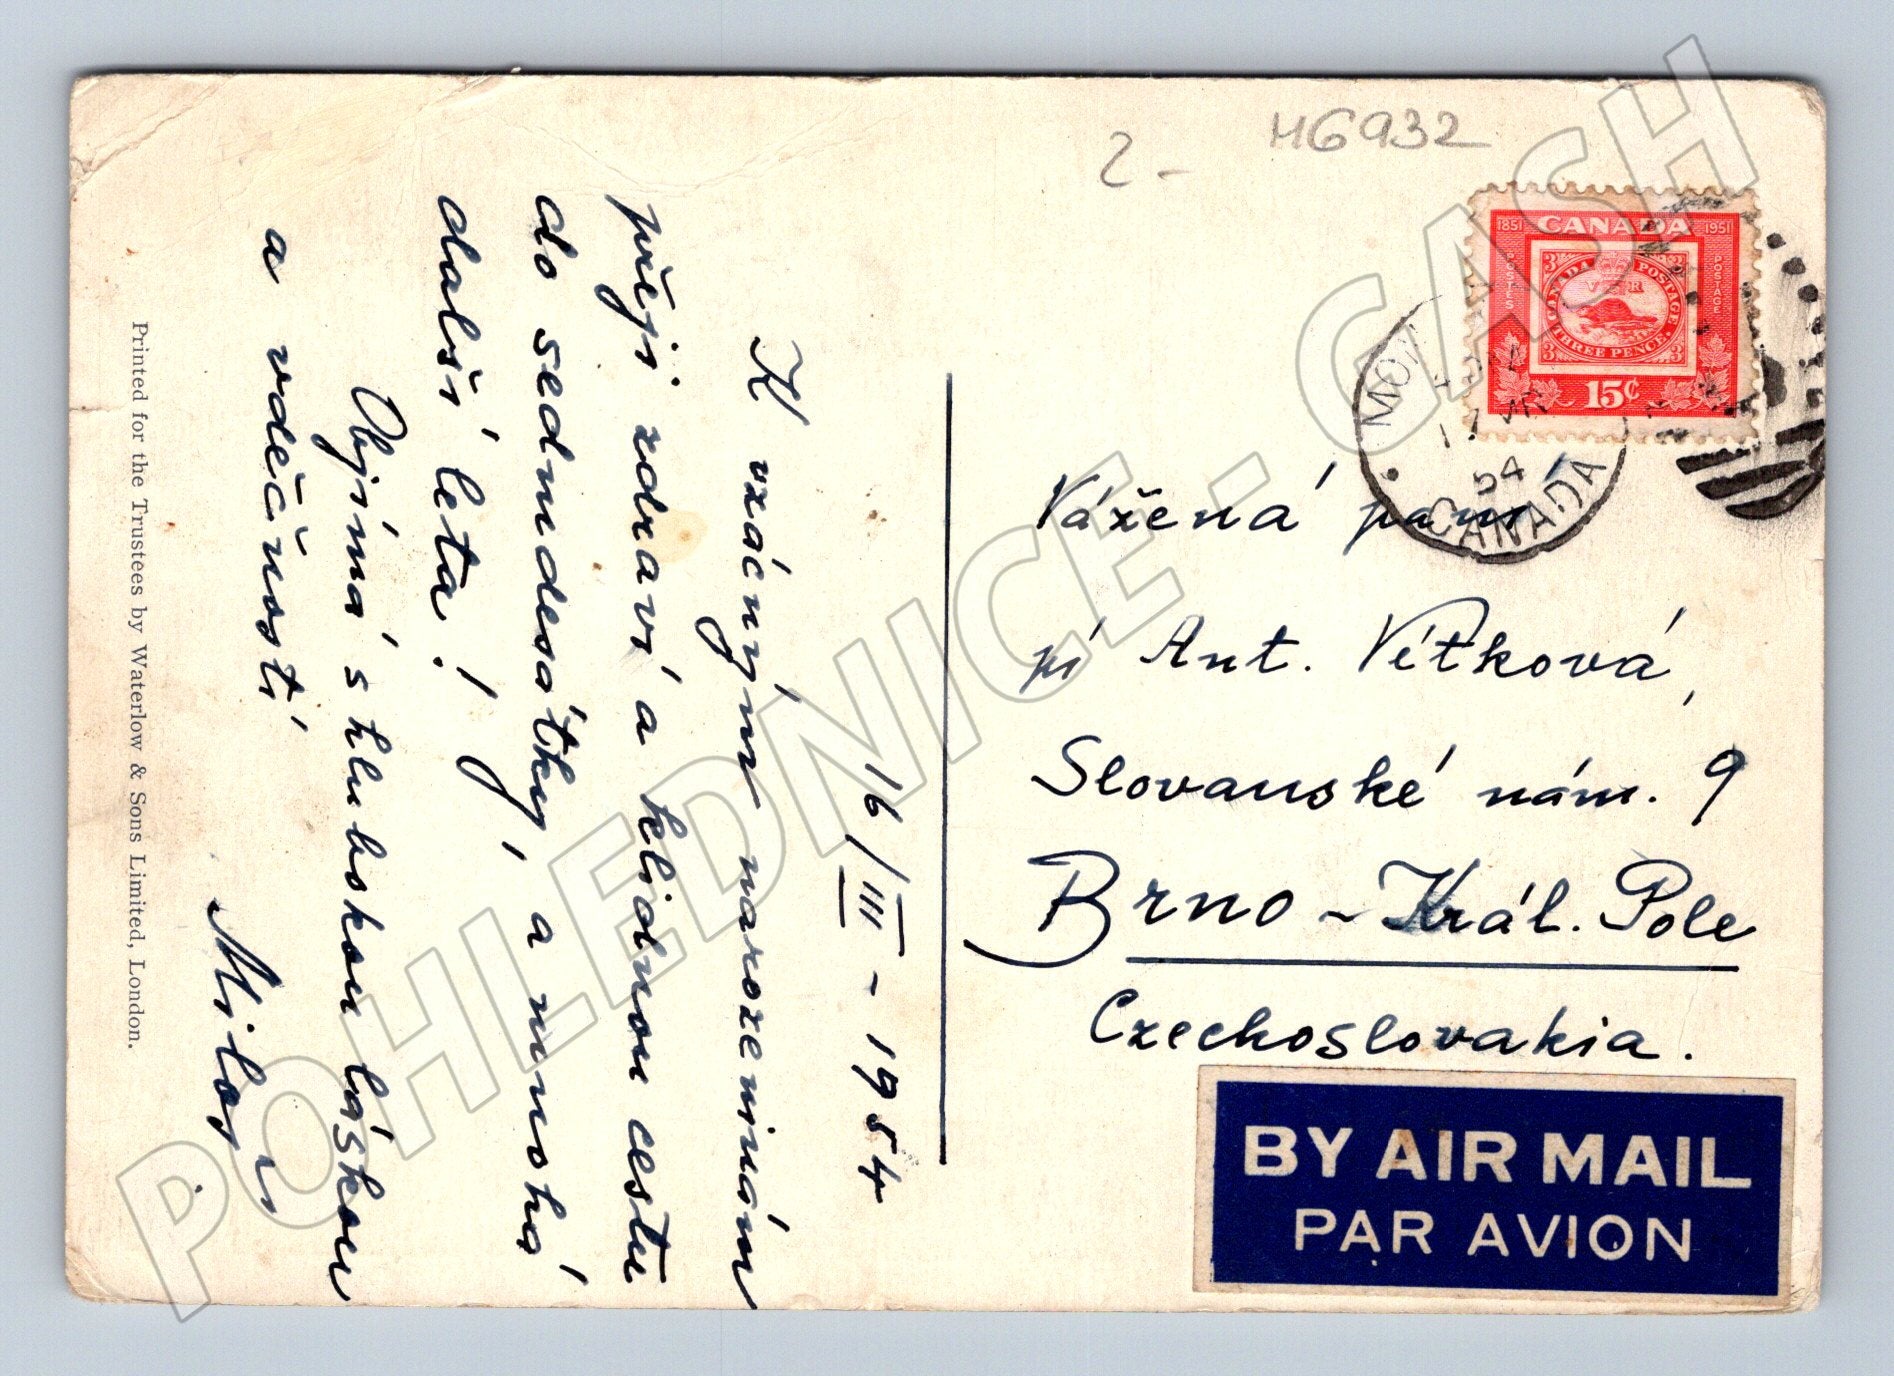 H6932
2-
1851 CANADA 1951
POSTES POSTAGE
CANADA POSTAGE
3 3
V R
THREE PENCE
3 3
15¢
54
CANADA
Vážená paní
pí Ant. Vítková,
Slovanské nám. 9
Brno - Král. Pole
Czechoslovakia.
BY AIR MAIL
PAR AVION
16/III - 1954
K vzácným narozeninám
přeji zdraví a klidnou cestu
do sedmdesátky, a mnohá
další leta!
Objímá s hlubokou láskou
a vděčností
Miloš
Printed for the Trustees by Waterlow & Sons Limited, London.
POHLEDNICE - CASH